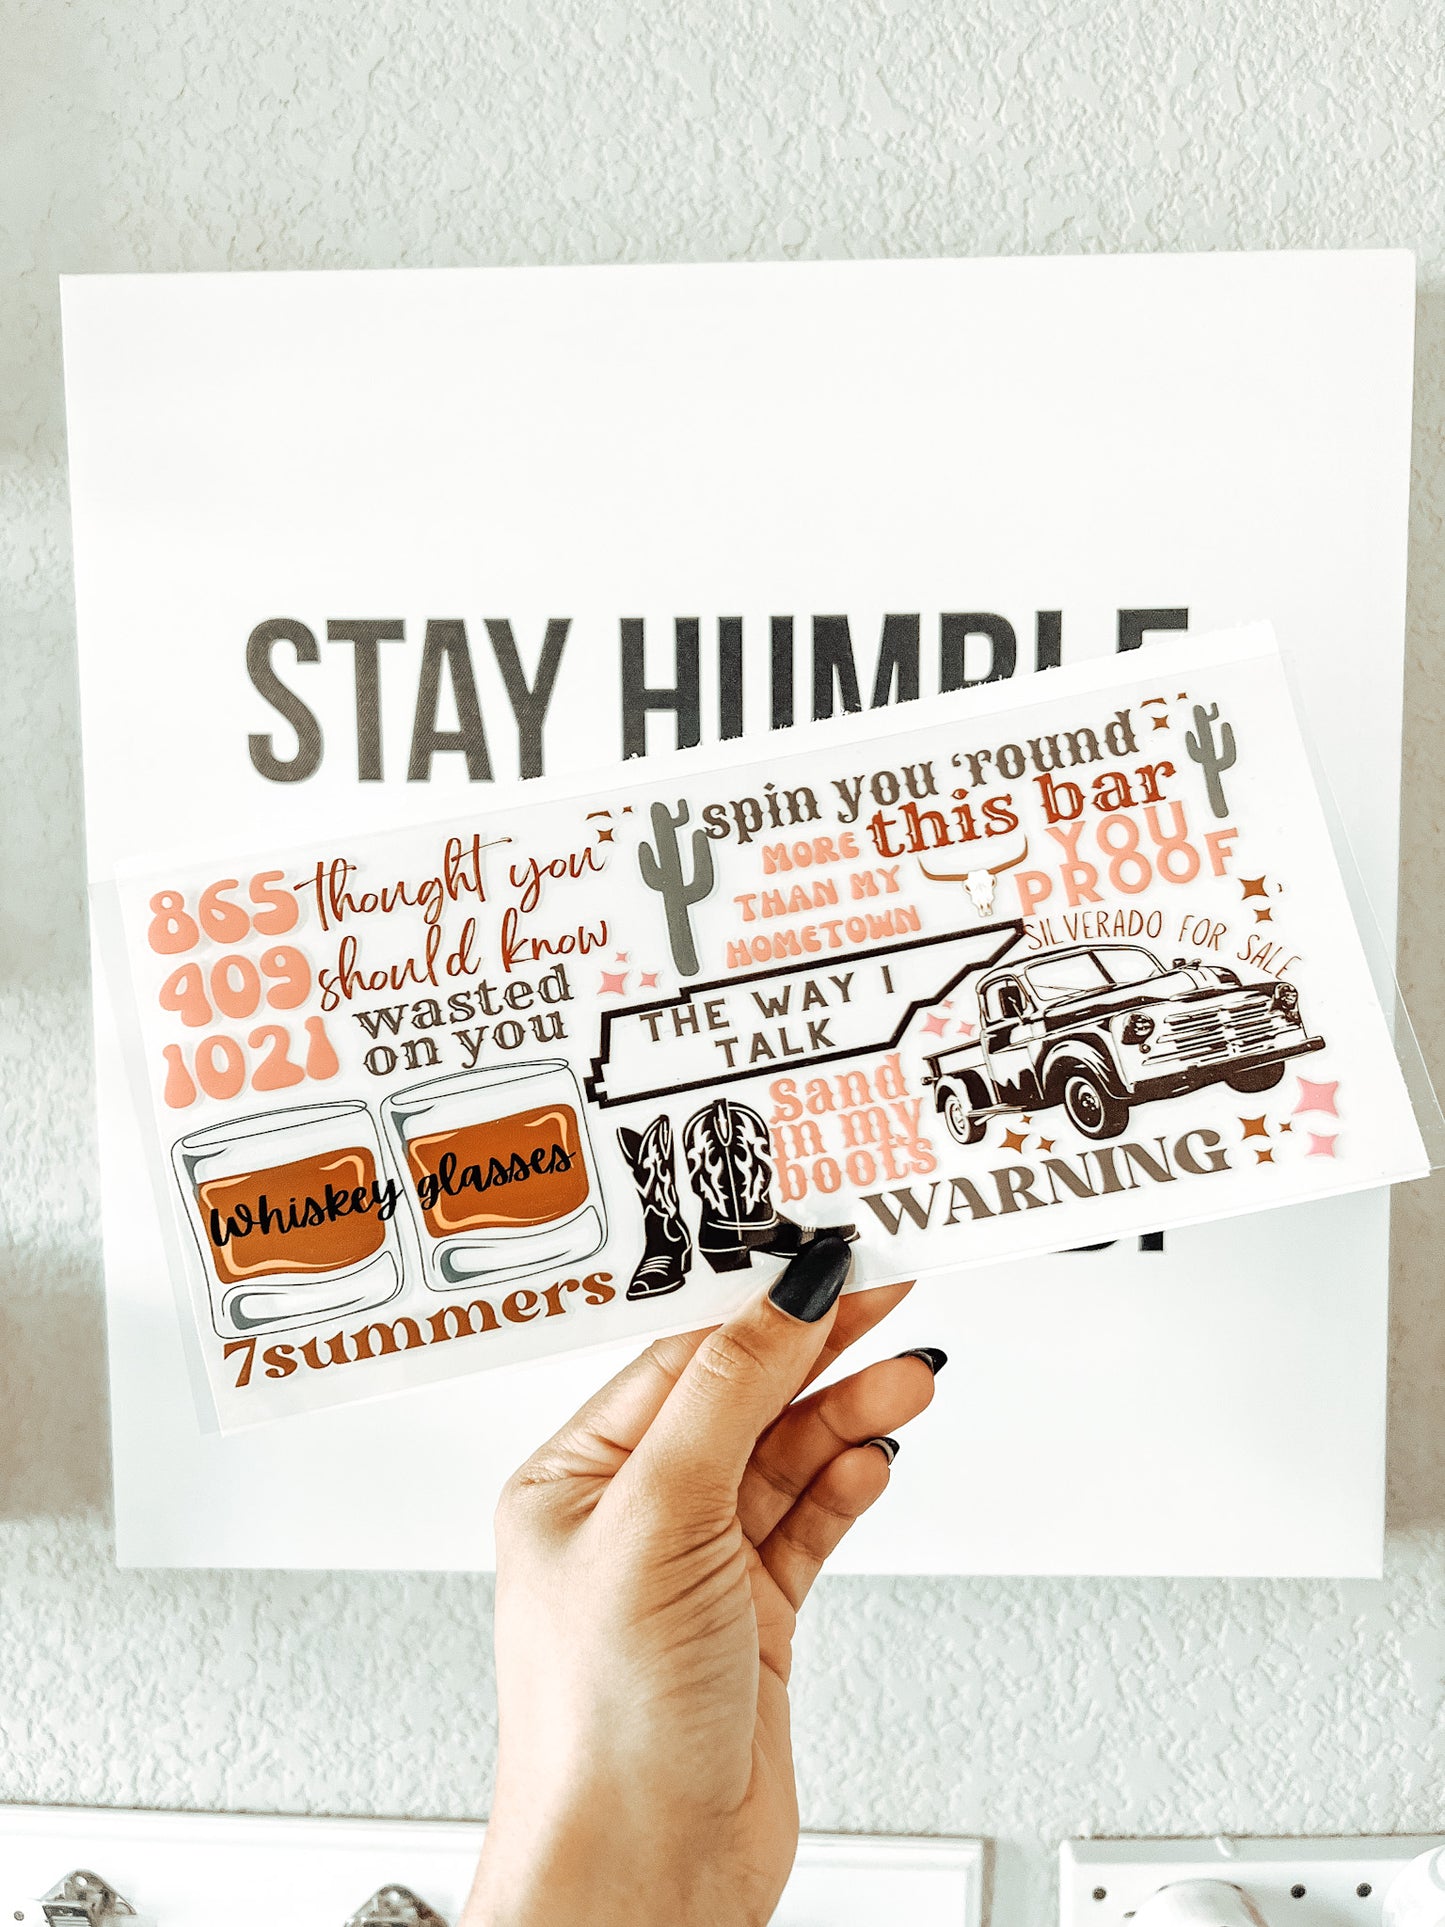 STAY HUMBLE
865
409
1021
thought you
should know
wasted
on you
whiskey glasses
7summers
spin you 'round
this bar
MORE
THAN MY
HOMETOWN
YOU
PROOF
THE WAY I
TALK
SILVERADO FOR SALE
Sand
in my
boots
WARNING